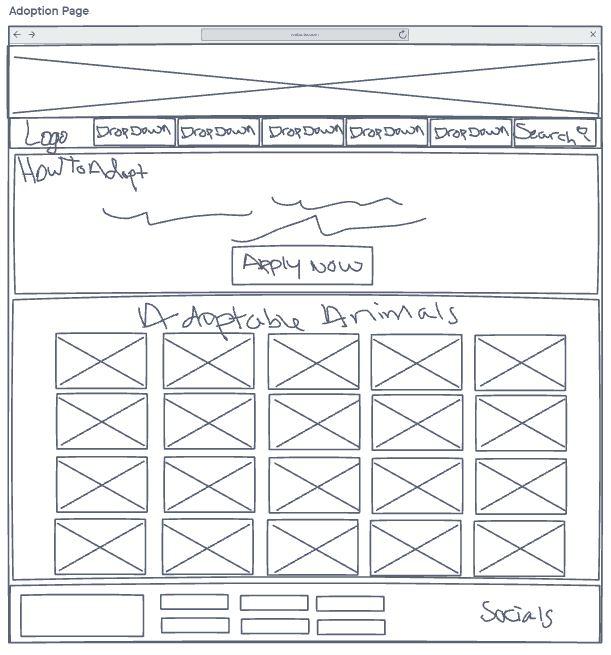 Adoption Page
Logo DropDown DropDown DropDown DropDown DropDown Search
How To Adopt
Apply Now
Adoptable Animals
Socials